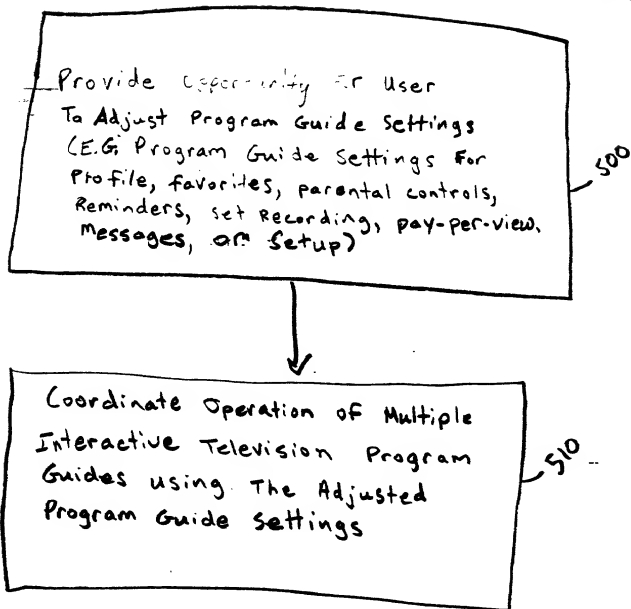 Provide Opportunity For User
To Adjust Program Guide Settings
(E.G. Program Guide Settings For
Profile, favorites, parental controls,
Reminders, set Recording, pay-per-view,
messages, or setup)
500
Coordinate Operation of Multiple
Interactive Television Program
Guides using The Adjusted
Program Guide Settings
510